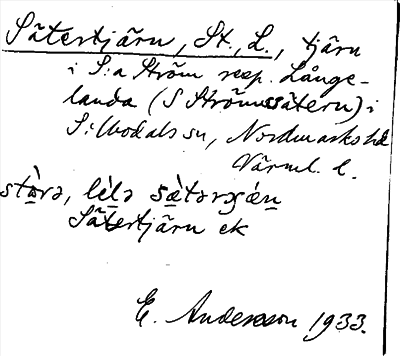 Sätertjärn, St., L., tjärn
i S:a Ström resp. Långe-
landa (S Strömssätern) i
Silbodals sn, Nordmarks hd
Värml. l.
stò̱rə, lèlə sæ̀tərɣǽn
Sätertjärn ek
E. Andersson 1933.